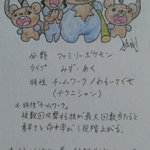 分類 ファミリーポケモン
タイプ みず・あく
特性 チームワーク/わるいてぐせ
(テクニシャン)
特性「チームワーク」
複数回攻撃する技が最大回数当たると
素早さと命中率が1段階上がる。